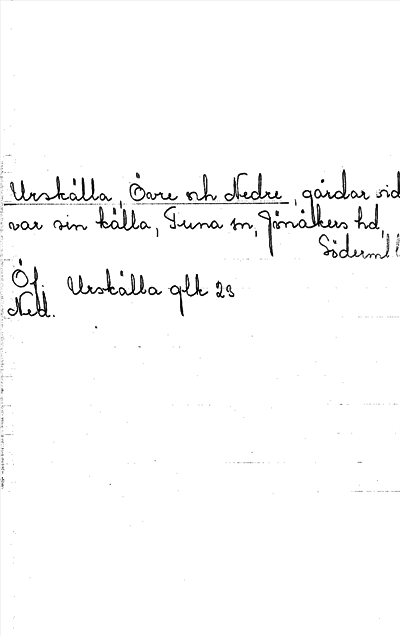 Urskälla, Övre och Nedre, gårdar vid
var sin källa, Tuna sn, Jönåkers hd,
Söderml
Öf.
Urskälla glk 23
Ned.